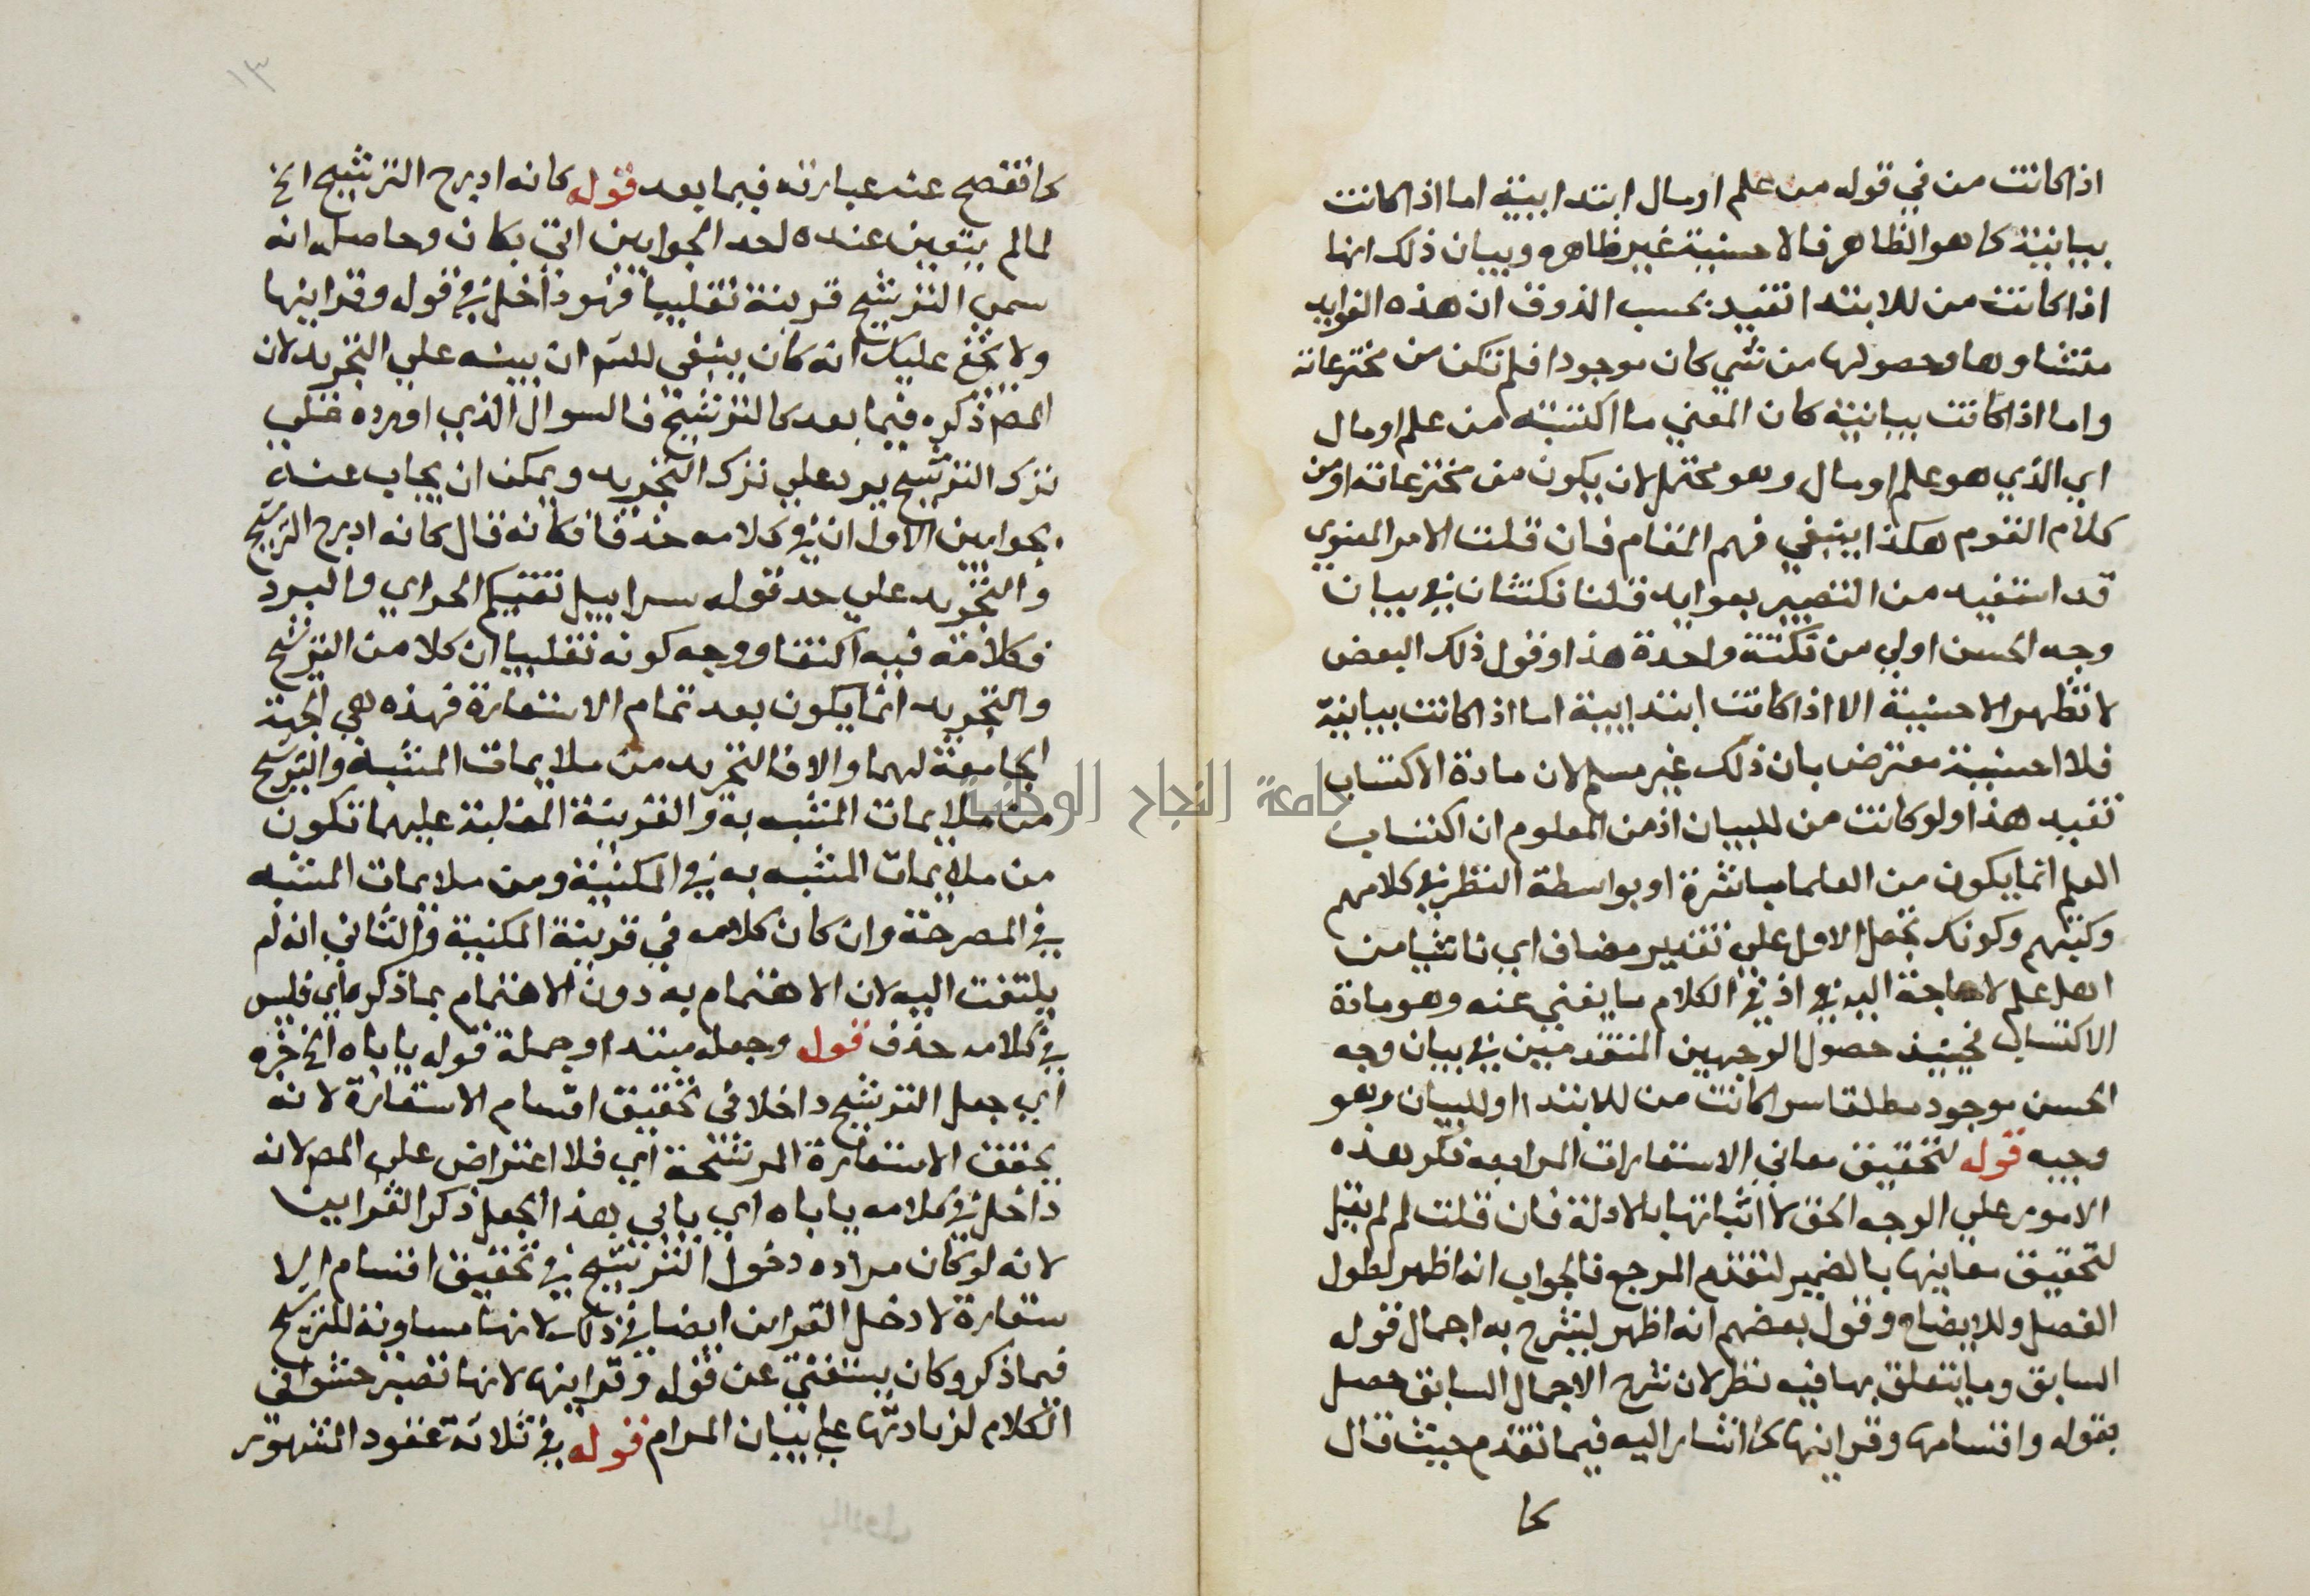 اذا كانت من في قوله من علم او مال ابتداىية اما اذا كانت
بيانية كما هو الظاهر فالاحسنية غير ظاهره وبيان ذلك انها
اذا كانت من للابتدا تفيد بحسب الذوق ان هذه الفوايد
منشاوها وحصولها من شي كان موجودا فلم تكن من مخترعاته
واما اذا كانت بيانية كان المعني ما اكتسبته من علم او مال
اي الذي هو علم او مال وهو محتمل لان يكون من مخترعاته او من
كلام القوم هكذا ينبغي فهم المقام فان قلت الامر المعنوي
قد استفيد من التعبير بعوايد قلنا نكتتان في بيان
وجه الحسن اولي من نكتة واحدة هذا وقول ذلك البعض
لا تظهر الاحسنية الا اذا كانت ابتدايية اما اذا كانت بيانية
فلا احسنية معترض بان ذلك غير مسلم لان مادة الاكتساب
تفيد هذا ولو كانت من للبيان اذ من المعلوم ان اكتساب
العلم انما يكون من العلما مباشرة او بواسطة النظر في كلامهم
وكتبهم وكونك تجعل الاول علي تقدير مضاف اي ناشيا من
اهل علم لا حاجة اليه في اذ في الكلام ما يغني عنه وهو مادة
الاكتساب فحينيذ حصول الوجهين المتقدمين في بيان وجه
الحسن موجود مطلقا سوا كانت من للابتدا او للبيان وهو
وجيه قوله لتحقيق معاني الاستعارات المراد به ذكر هذه
الامور علي الوجه الحق لا اثباتها بالادلة فان قلت لم لم يقل
لتحقيق معانيها بالضمير لتقدم المرجع فالجواب انه اظهر لطول
الفصل وللايضاح وقول بعضهم انه اظهر ليشرح به اجمال قوله
السابق وما يتعلق بها فيه نظر لان شرح الاجمال السابق حصل
بقوله واقسامها وقراينها كما اشار اليه فيما تقدم حيث قال
كما
١٣
كما تفصح عنه عبارته فيما بعد قوله كانه ادرج الترشيح الخ
لما لم يتعين عنده احد الجوابين اتي بكان وحاصله انه
سمي الترشيح قرينة تغليبا فهو داخل في قوله وقراينها
ولا يخفي عليك انه كان ينبغي للش ان يبينه علي التجريد لان
المص ذكره فيما بعد كالترشيح فالسوال الذي اورده علي
ترك الترشيح يرد علي ترك التجريد ويمكن ان يجاب عنه
بجوابين الاول ان في كلامه حذفا فكانه قال كانه ادرج الترشيح
والتجريد علي حد قوله سرابيل تقيكم الحر اي والبرد
فكلامه فيه اكتفا ووجه كونه تغليبا ان كلا من الترشيح
والتجريد انما يكون بعد تمام الاستعارة فهذه هي الجهة
الجامعة لهما والا فالتجريد من ملايمات المشبه والترشيح
من ملايمات المشبه به والقرينة المغلبة عليهما تكون
من ملايمات المشبه به في المكنية ومن ملايمات المشبه
في المصرحة وان كان كلامه في قرينة المكنية والثاني انه لم
يلتفت اليه لان الاهتمام به دون الاهتمام بما ذكر اي فليس
في كلامه حذف قوله وجعله مبتدا وجملة قوله ياباه الخ خبره
اي جعل الترشيح داخلا في تحقيق اقسام الاستعارة لانه
يحقق الاستعارة المرشحة اي فلا اعتراض علي المص لانه
داخل في كلامه ياباه اي يابي هذا الجعل ذكر القراين
لانه لو كان مراده دخول الترشيح في تحقيق اقسام الا
ستعارة لادخل القراين ايضا في ذلك لانها مساوية للترشيح
فيما ذكر وكان يستغني عن قوله وقراينها لانها تصير حشوا في
الكلام لزيادتها علي بيان المرام قوله في ثلاثة عقود المشهور
بالاول
جامعة النجاح الوطنية